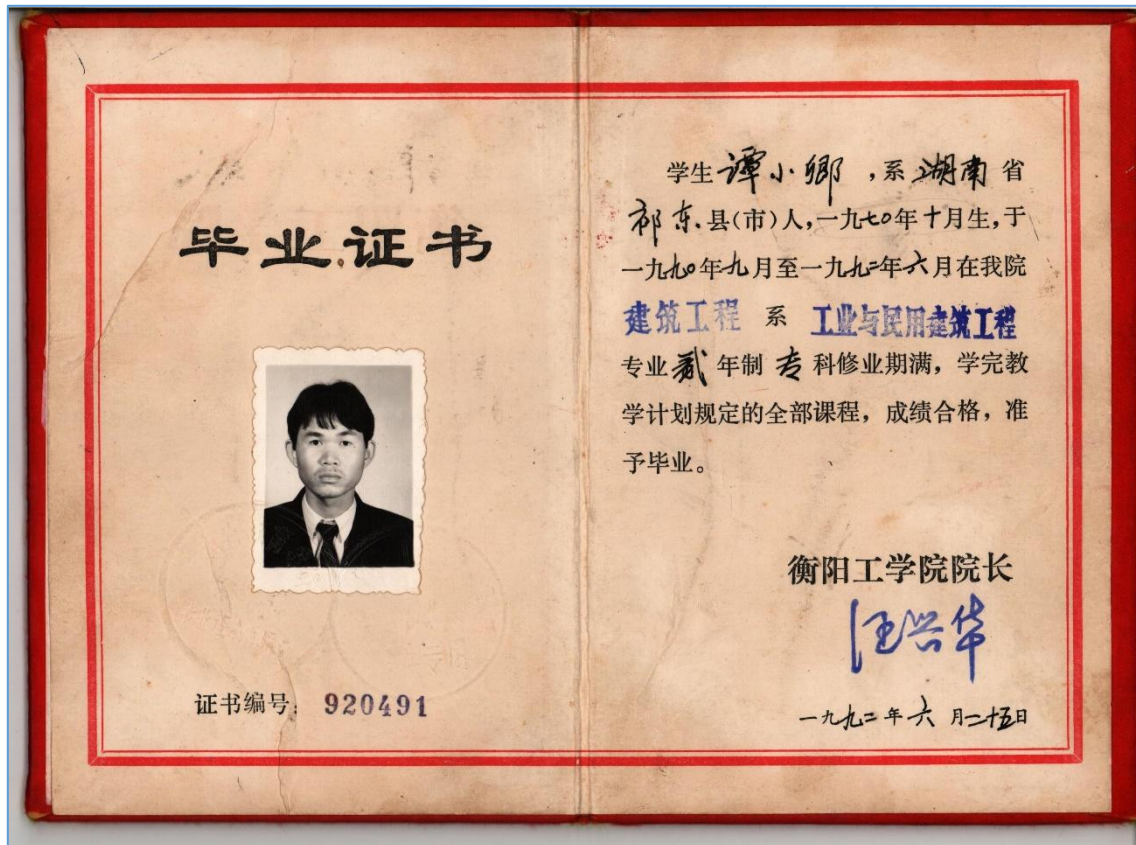 毕业证书
证书编号: 920491
学生谭小鄉,系湖南省
祁东县(市)人,一九七0年十月生,于
一九九0年九月至一九九二年六月在我院
建筑工程 系 工业与民用建筑工程
专业贰年制专科修业期满,学完教
学计划规定的全部课程,成绩合格,准
予毕业。
衡阳工学院院长
汪兴华
一九九二年六月二十五日